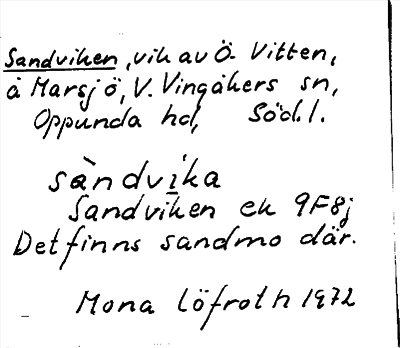 Sandviken, vik av Ö. Vitten,
å Marsjö, V. Vingåkers sn,
Oppunda hd, Södl.
sàndvi̱ka
Sandviken ek 9F8j
Det finns sandmo där.
Mona Löfroth 1972